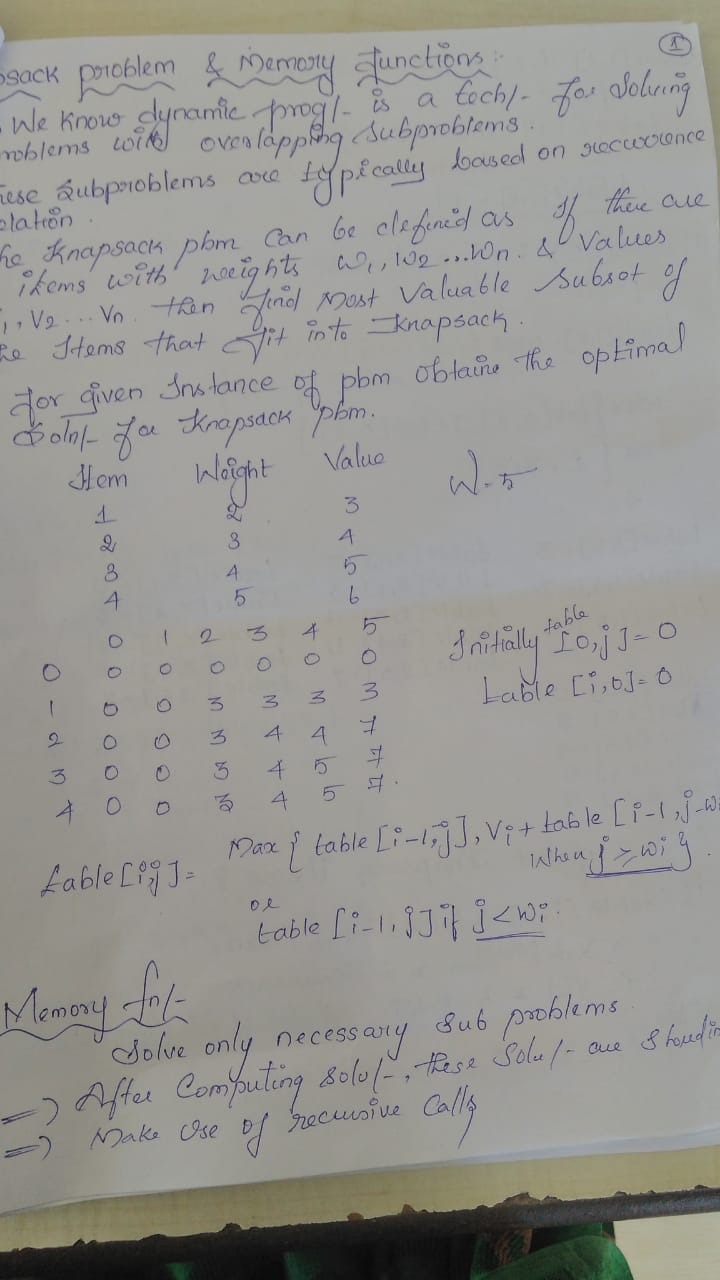 1
sack problem & Memory functions :-
We know dynamic prog/- is a tech/- for solving
roblems with overlapping subproblems.
ese subproblems are typically based on recurrence
lation.
he Knapsack pbm can be defined as if there are
items with weights w1, w2 ... wn. & values
, V2 ... Vn. then find Most Valuable subset of
he Items that fit into Knapsack.
for given Instance of pbm obtaine the optimal
Soln/- for Knapsack pbm.
Item Weight Value W=5
1 2 3
2 3 4
3 4 5
4 5 6
0 1 2 3 4 5
0 0 0 0 0 0 0
1 0 0 3 3 3 3
2 0 0 3 4 4 7
3 0 0 3 4 5 7
4 0 0 3 4 5 7.
Initially table [0,j]=0
table [i,0]=0
table[i,j]= Max { table [i-1,j], Vi + table [i-1, j-w
When j ≥ wi }
or
table [i-1, j] if j < wi.
Memory fn/-
Solve only necessary sub problems
=> After Computing solu/-, these Solu/- are
=> Make Use of recursive calls